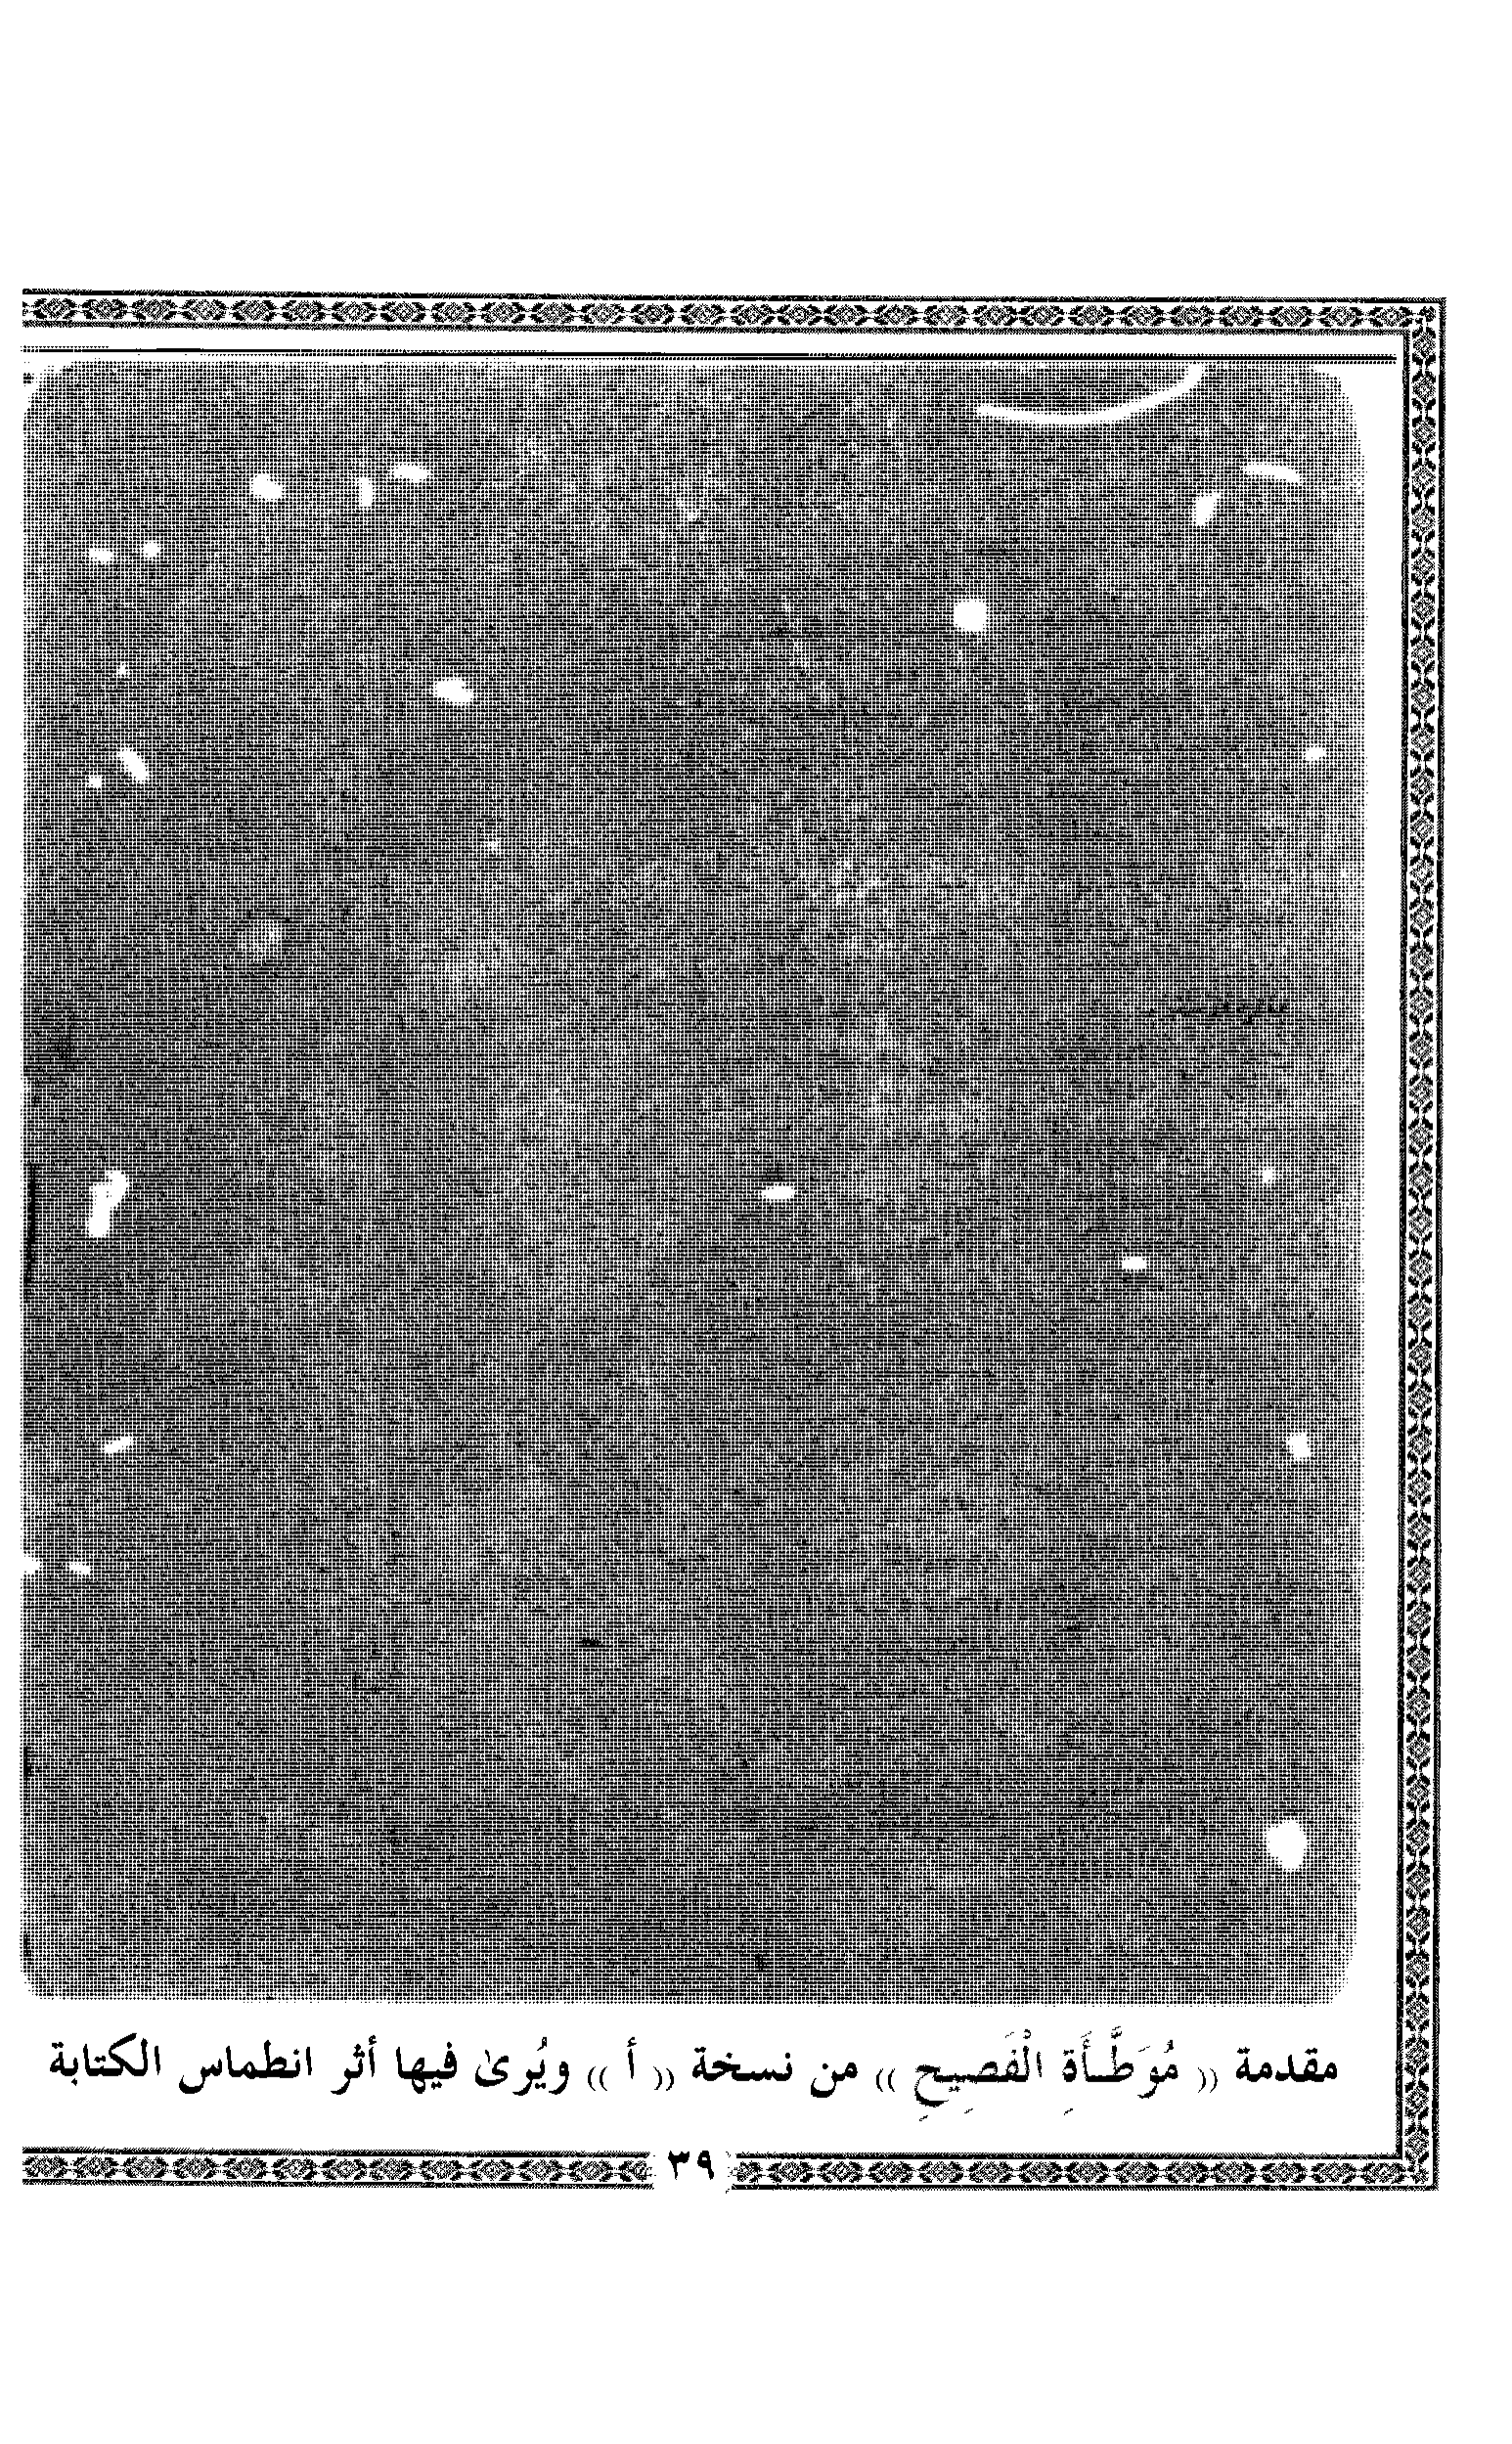 مقدمة (( مُوَطَّأَةِ الْفَصِيحِ )) من نسخة (( أ )) ويُرىٰ فيها أثر انطماس الكتابة
٣٩